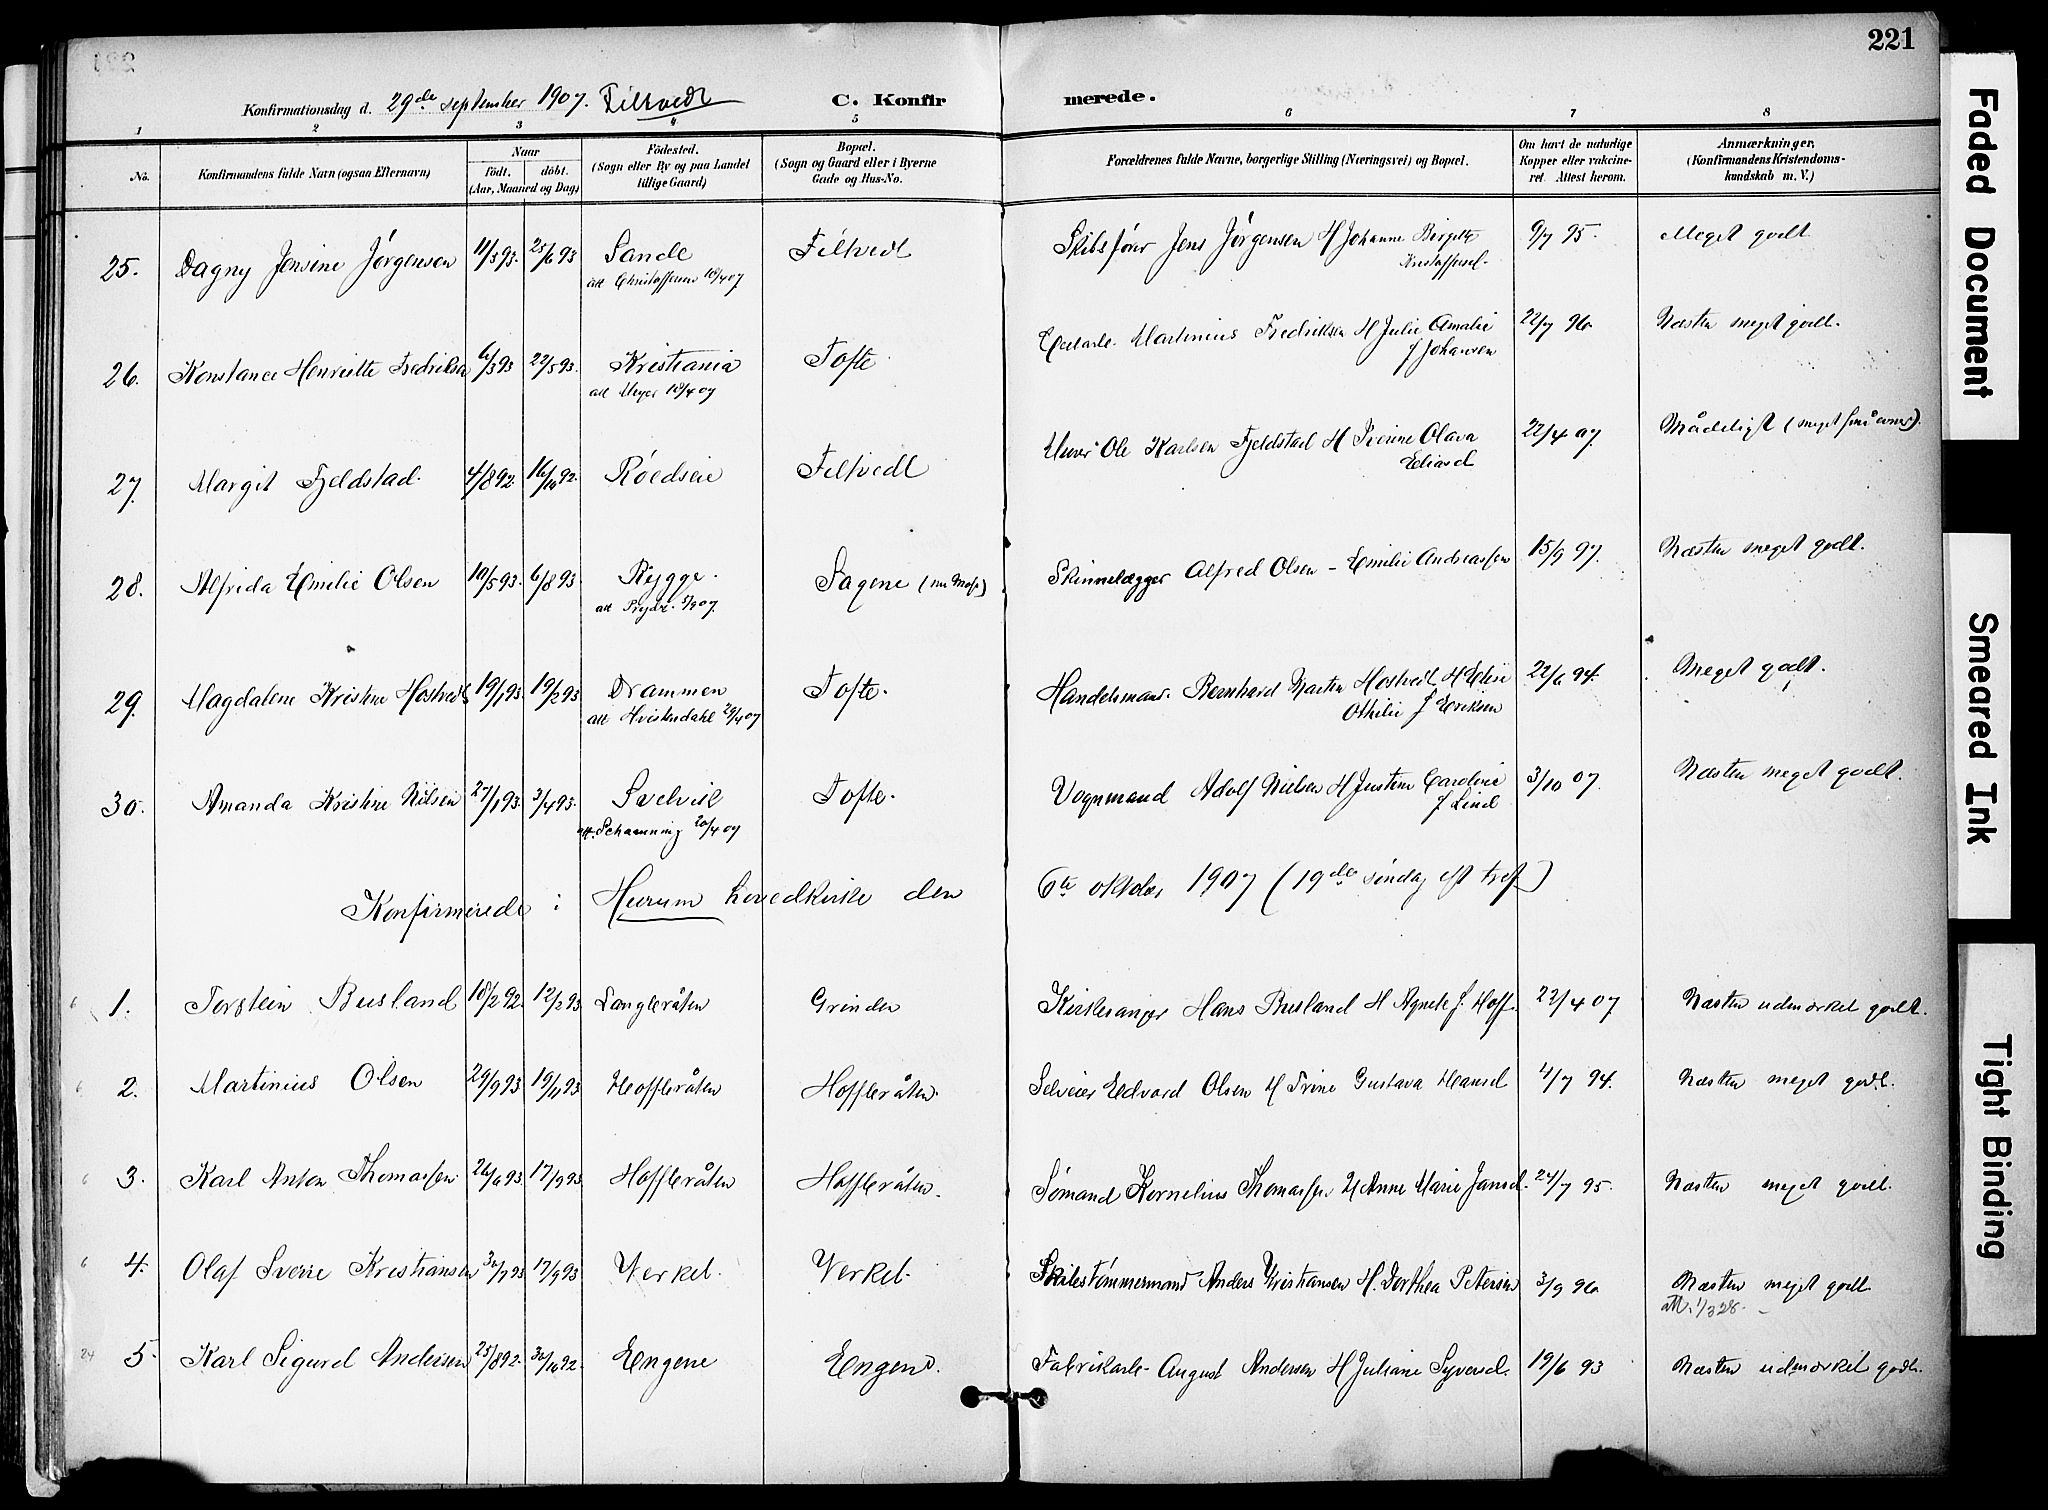 221
Konfirmationsdag d. 29de september 1907. Filtvedt C. Konfirmerede.
1 2 3 4 5 6 7 8
No. Konfirmandens fulde Navn (ogsaa Efternavn) Naar födt. döbt. (Aar, Maaned og Dag) Födested. (Sogn eller By og paa Landet tillige Gaard) Bopæl. (Sogn og Gaard eller i Byerne Gade og Hus-No. Forældrenes fulde Navne, borgerlige Stilling (Næringsvei) og Bopæl. Om havt de naturlige Kopper eller vakcineret. Attest herom. Anmærkninger, (Konfirmandens Kristendomskundskab m. V.)
25. Dagny Jensine Jørgensen 11/3 93. 25/6 93 Sande Filtvedt Skibsfører Jens Jørgensen H Johanne Birgitte 9/7 95. Meget godt
att Christoffersen 18/4 07 Kristoffersd.
26. Konstance Henriette Fredriksen 6/3 93 22/5 93. Kristiania Tofte Martinius Fredriksen H Julie Amalie 22/7 96 Næsten meget godt.
att Meyer 18/4 07 f Johansen
27. Margit Fjeldstad. 4/8 92. 16/10 92. Røedseie Filtvedt Murer Ole Karlsen Fjeldstad H Olava 22/4 07. Mådeligt (meget små evner).
Eliasd
28. Alfrida Emilie Olsen 10/5 93. 6/8 93 Rygge. Sagene (nu Moss) Skinnelægger Alfred Olsen - Emilie Andreassen 15/9 97. Næsten meget godt.
att Prydz. 5/9 07.
29. Magdalene Kristine Hostvedt 19/1 93. 19/2 93 Drammen Tofte. Handelsmand. Bernhard Marten Hostvedt H Elise 22/6 94. Meget godt.
att Hvistendahl 29/4 07 Othilie f Eriksen
30. Amanda Kristine Nilsen 27/1 93. 3/4 93. Svelvik Tofte. Vognmand Adolf Nielsen H Justine Caroline 3/10 07. Næsten meget godt.
att. Schanning 20/4 07 f Lind
Konfirmerede i Hurum hovedkirke den 6te oktober 1907 (19de søndag eft tref)
1. Torstein Busland 18/2 92. 12/2 93 Langleråten Grinden Kirkesanger Hans Busland H Agnete f. Hoff. 22/4 07 Næsten udmerket godt.
2. Martinius Olsen 29/9 93 19/11 93 Hoffleråten Hoffleråten. Selveier Edvard Olsen H Trine Gustava Hansd 4/7 94. Næsten meget godt.
3. Karl Anton Thomassen 26/6 93. 17/9 93 Hoffleråten Hoffleråten. Sømand Kornelius Thomassen H Anne Marie Jansd. 24/7 95. Næsten meget godt.
4. Olaf Sverre Kristiansen 30/7 93 17/9 93 Verket. Verket. Skibstømmermand Anders Kristiansen H. Dorthea Petersen 3/9 96 Næsten meget godt.
att. 1/3 28.
24 5. Karl Sigurd Andersen 25/8 92. 30/10 92. Engene Engene. Fabrikarb. August Andersen H Juliane Syversd. 19/6 93 Næsten udmerket godt.
Faded Document
Smeared Ink
Tight Binding